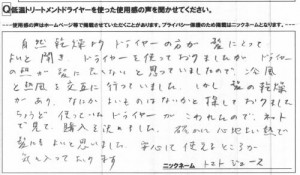 Q低温トリートメントドライヤーを使った使用感の声を聞かせてください。
-----使用感の声はホームページ等で掲載させていただくことがあります。プライバシー保護のため掲載はニックネームとなります。-----
自然乾燥より ドライヤーの方が 髪にとって
よいと聞き ドライヤーを使っておりましたが ドライヤー
の熱が 髪に よくないと思っていましたので、冷風
と熱風を交互に 行っていました。しかし 髪の乾燥
があり、なにか よいものはないかと探しておりました
ちょうど 使っていたドライヤーが こわれたので、ネット
で見て、購入を決めました。確かに 心地よい熱で
髪にもよいと思いました。安心して 使えるところが
気に入っております
ニックネーム トマトジュース